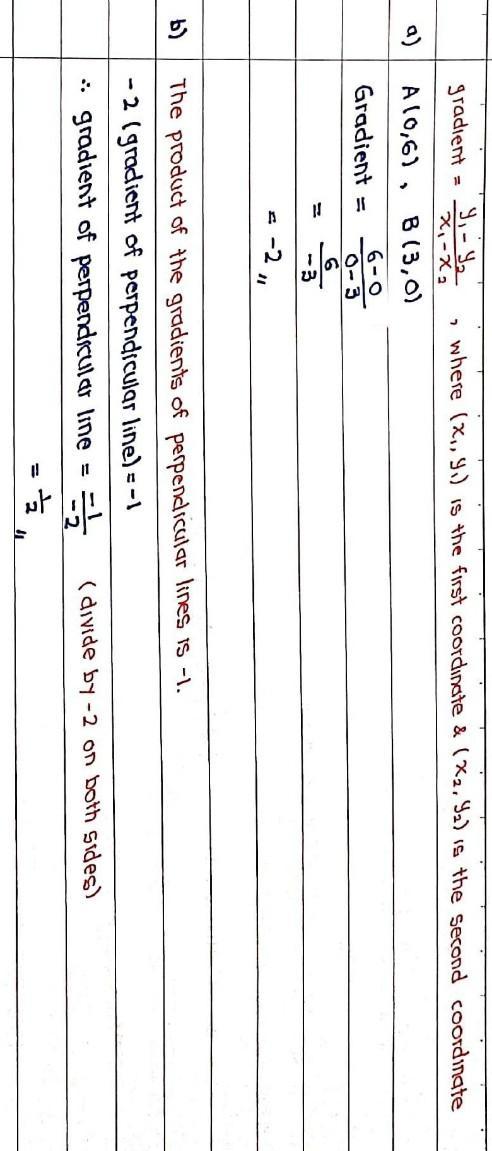 gradient = y₁-y₂/x₁-x₂ , where (x₁, y₁) is the first coordinate & (x₂, y₂) is the second coordinate
a) A(0,6) , B(3,0)
Gradient = 6-0/0-3
= 6/-3
= -2 〃
b) The product of the gradients of perpendicular lines is -1.
-2 (gradient of perpendicular line) = -1
∴ gradient of perpendicular line = -1/-2 (divide by -2 on both sides)
= 1/2 〃